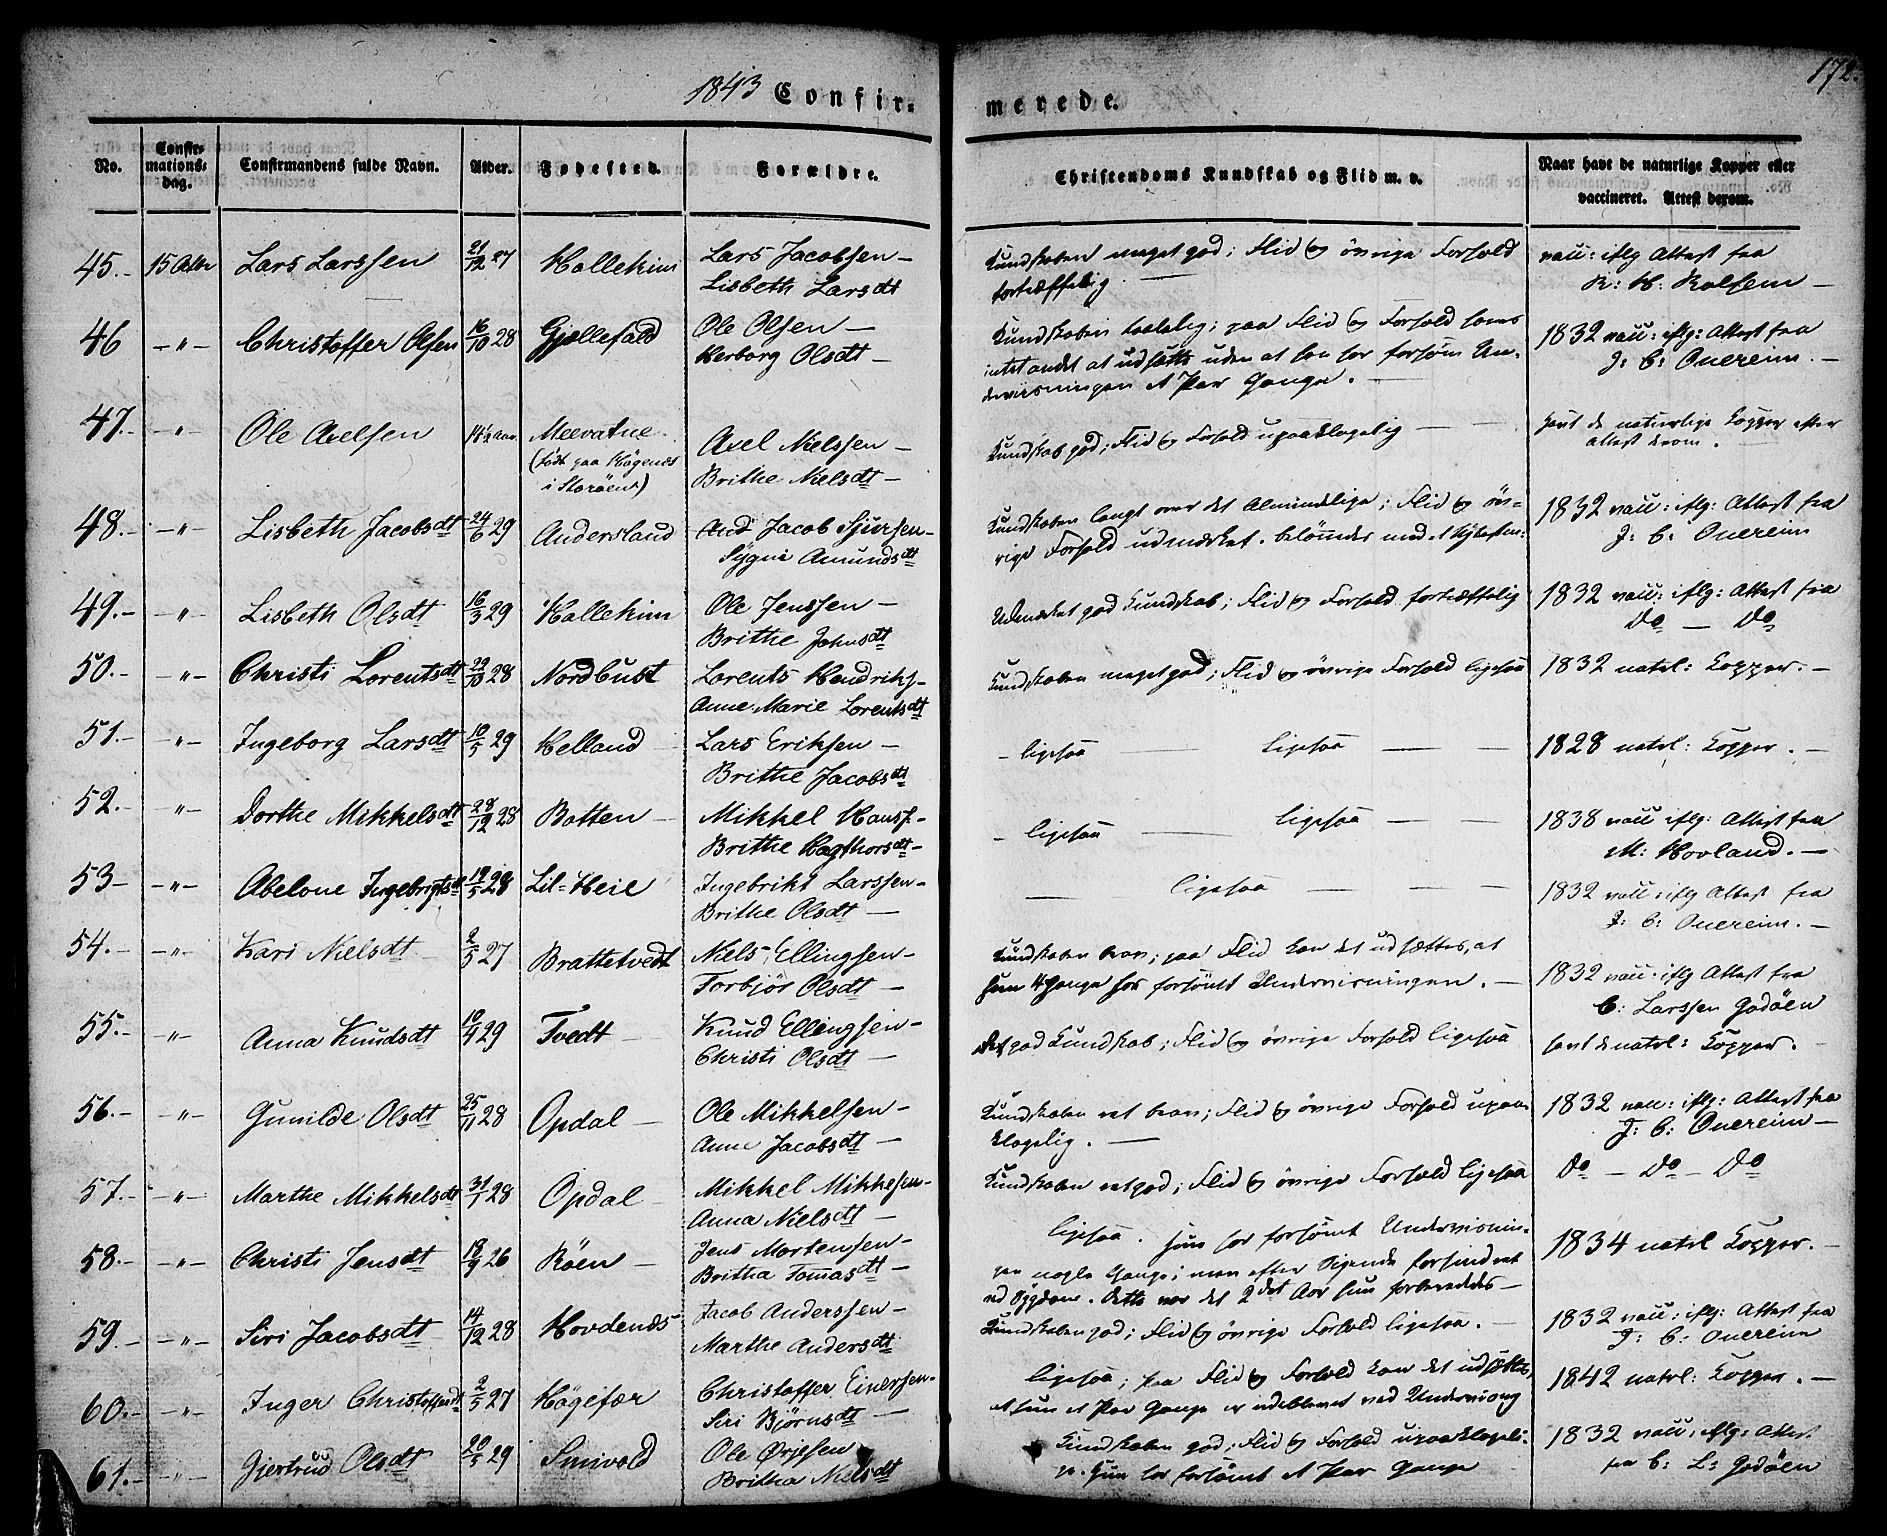 172.
1843 Confir-
merede.
No.
Confir-
mations-
dag.
Confirmandens fulde Navn.
Alder.
Fødested.
Forældre.
Christendoms Kundskab og Flid m. v.
Naar havt de naturlige Kopper eller
vaccineret. Attest derom.
45.- 15 Octbr Lars Larssen 21/12 27 Hallekim Lars Jacobsen -
Lisbeth Larsdt
Kundskaben meget god; Flid og øvrige Forhold
fortræffelig -
vacc: iflg Attest fra
R: H: Rolfsen -
46 -"- Christoffer Olsen 16/10 28 Gjellefald Ole Olsen -
Herborg Olsdt -
Kundskaben taalelig; paa Flid og Forhold haves
intet andet at udsætte uden at han har forsømt Un-
dervisningen et Par Gange. -
1832 vacc: iflg: Attest fra
J: C: Ouereim. -
47.- -"- Ole Axelsen 14½ Aar Meevatne.
(født paa Hägenæs
i Storöen)
Axel Nielssen -
Brithe Nielsdt -
Kundskab god; Flid og Forhold upaaklagelig -
havt de naturlige Kopper efter
attest derom.
48.- -"- Lisbeth Jacobsdt 24/6 29 Andersland And Jacob Sjursen -
Sygni Amundsdt
Kundskaben langt over det Almindelige; Flid og øv-
rige Forhold udmærket. belönnes med et Nytestm:
1832 vacc: iflg: Attest fra
J: C: Ouereim
49.- -"- Lisbeth Olsdt 16/3 29 Hallekim Ole Jenssen -
Brithe Johnsdt
Udmerket god Kundskab; Flid og Forhold fortræffelig
1832 vacc: iflg: Attest fra
Do - Do
50.- -"- Christi Lorentsdt 22/10 28 Nordbust Lorents Hendriks.
Anne Marie Lorentsdt
Kundskaben meget god; Flid og øvrige Forhold ligesaa
1832 natrl: Kopper. -
51.- -"- Ingeborg Larsdt 10/5 29 Helland Lars Eriksen -
Brithe Jacobsdt
- ligesaa - ligesaa -
1828 natrl: Kopper. -
52.- -"- Dorthe Mikkelsdt 28/12 28 Botten - Mikkel Hanss. -
Brithe Hagthorsdt -
- ligesaa - ligesaa -
1838 vacc iflg: Attest fra
M: Hovland. -
53- -"- Abelone Ingebrigtsdt 19/5 28 Lil-Heie Ingebrikt Larssen -
Brithe Olsdt -
- ligesaa -
1832 vacc: iflg Attest fra
J: C: Ouereim. -
54.- -"- Kari Nielsdt 2/5 27 Brattetvedt Niels Ellingsen -
Torbjör Olsdt -
Kundskaben brav; paa Flid kan det udsættes, at
hun 4 Gange har forsömt Undervisningen. -
1832 vacc. iflg Attest fra
C: Larssen Godöen
55.- -"- Anna Knudsdt 10/9 29 Tvedt - Knud Ellingsen -
Christi Olsdt -
Ret god Kundskab; Flid og øvrige Forhold ligesaa
havt de natrl: Kopper.
56.- -"- Gunilde Olsdt 25/11 28 Opdal - Ole Mikkelsen -
Anne Jacobsdt -
Kundskaben ret brav; Flid og øvrige Forhold upaa-
klagelig. -
1832 vacc: iflg: Attest fra
J: C: Ouereim -
57.- -"- Marthe Mikkelsdt 31/7 28 Opdal - Mikkel Mikkelsen -
Anna Nielsdt -
Kundskaben ret god; Flid og øvrige Forhold ligesaa
Do - Do - Do
58.- -"- Christi Jensdt 18/9 26 Röen - Jens Mortensen -
Britha Tomasdt -
ligesaa. Hun har forsömt Undervisnin-
gen nogle Gange; men efter Sigende forhindret
ved Sygdom. Dette var det 2det Aar hun forberededes -
1834 natrl Kopper. -
59.- -"- Siri Jacobsdt 14/12 28 Hovdenæs Jacob Anderssen -
Marthe Andersdt
Kundskaben god; Flid og øvrige Forhold ligesaa. -
1832 vacc: iflg: Attest fra
J: C: Ouereim
60.- -"- Inger Christoffersdt 2/5 27 Hägefær Christoffer Einersen -
Siri Björnsdt -
ligesaa; paa Flid og Forhold kan det udsættes,
at hun et Par Gange er udebleven ved Undervisng
1842 natrl: Kopper. -
61.- -"- Gjertrud Olsdt 20/5 29 Smivold Ole Ørjesen
Britha Nielsdt
Kundskaben god; Flid og Forhold upaaklageli-
ge. Hun har forsömt et Par Gange
1832 vacc: iflg: Attest
fra C: L: Godöen